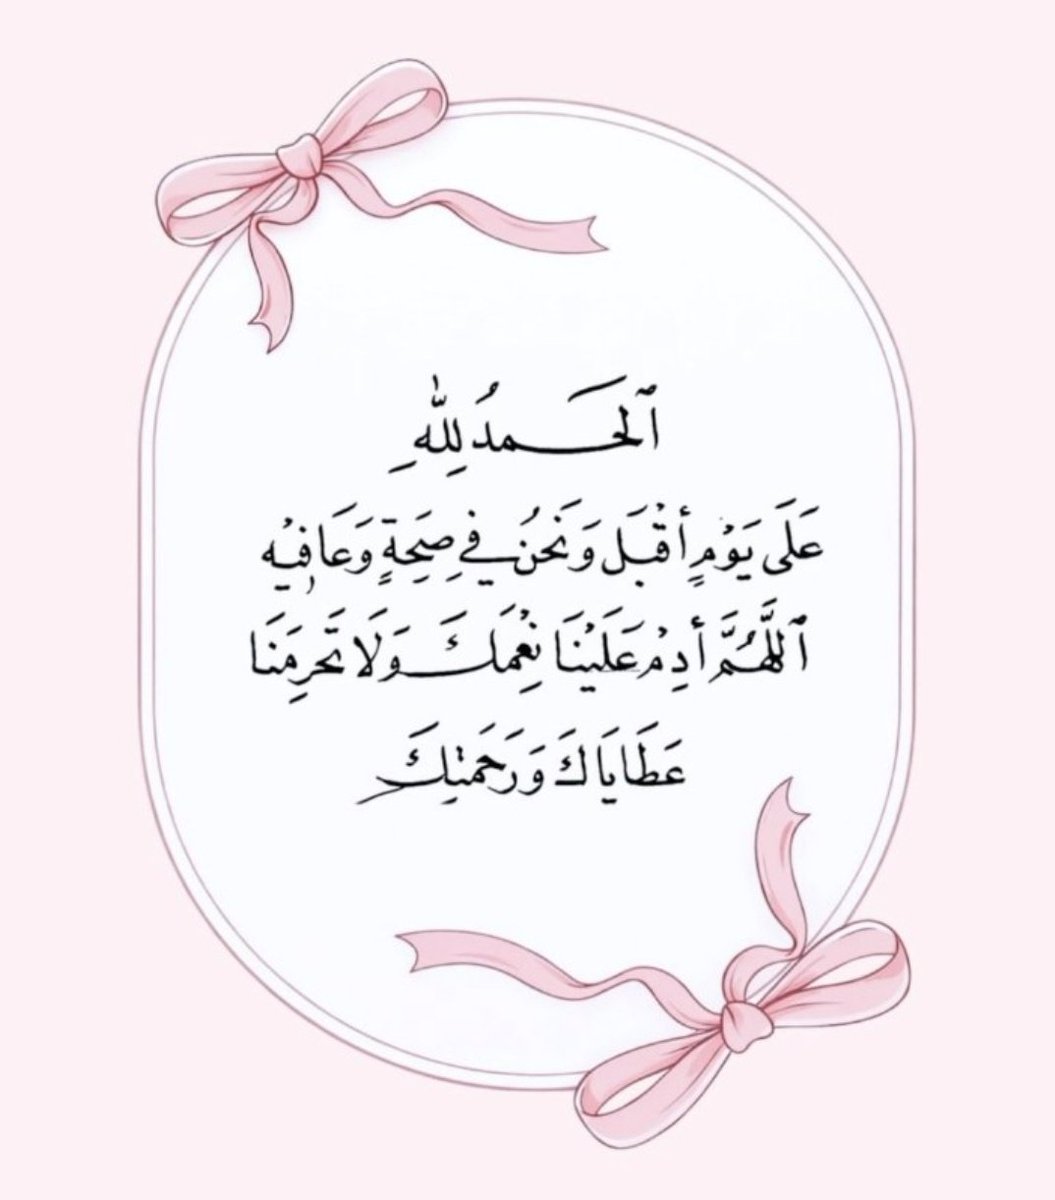 ٱلْحَمدُ لِلّٰهِ
عَلَى يَوْمٍ أقْبَل وَنَحنُ في صِحَةٍ وَعَافِيْه
ٱللَّهُمَّ أدِمْ عَلَيْنَا نِعْمَك وَلَا تَحرِمَنَا
عَطَايَاكَ وَرَحَمتِكَ